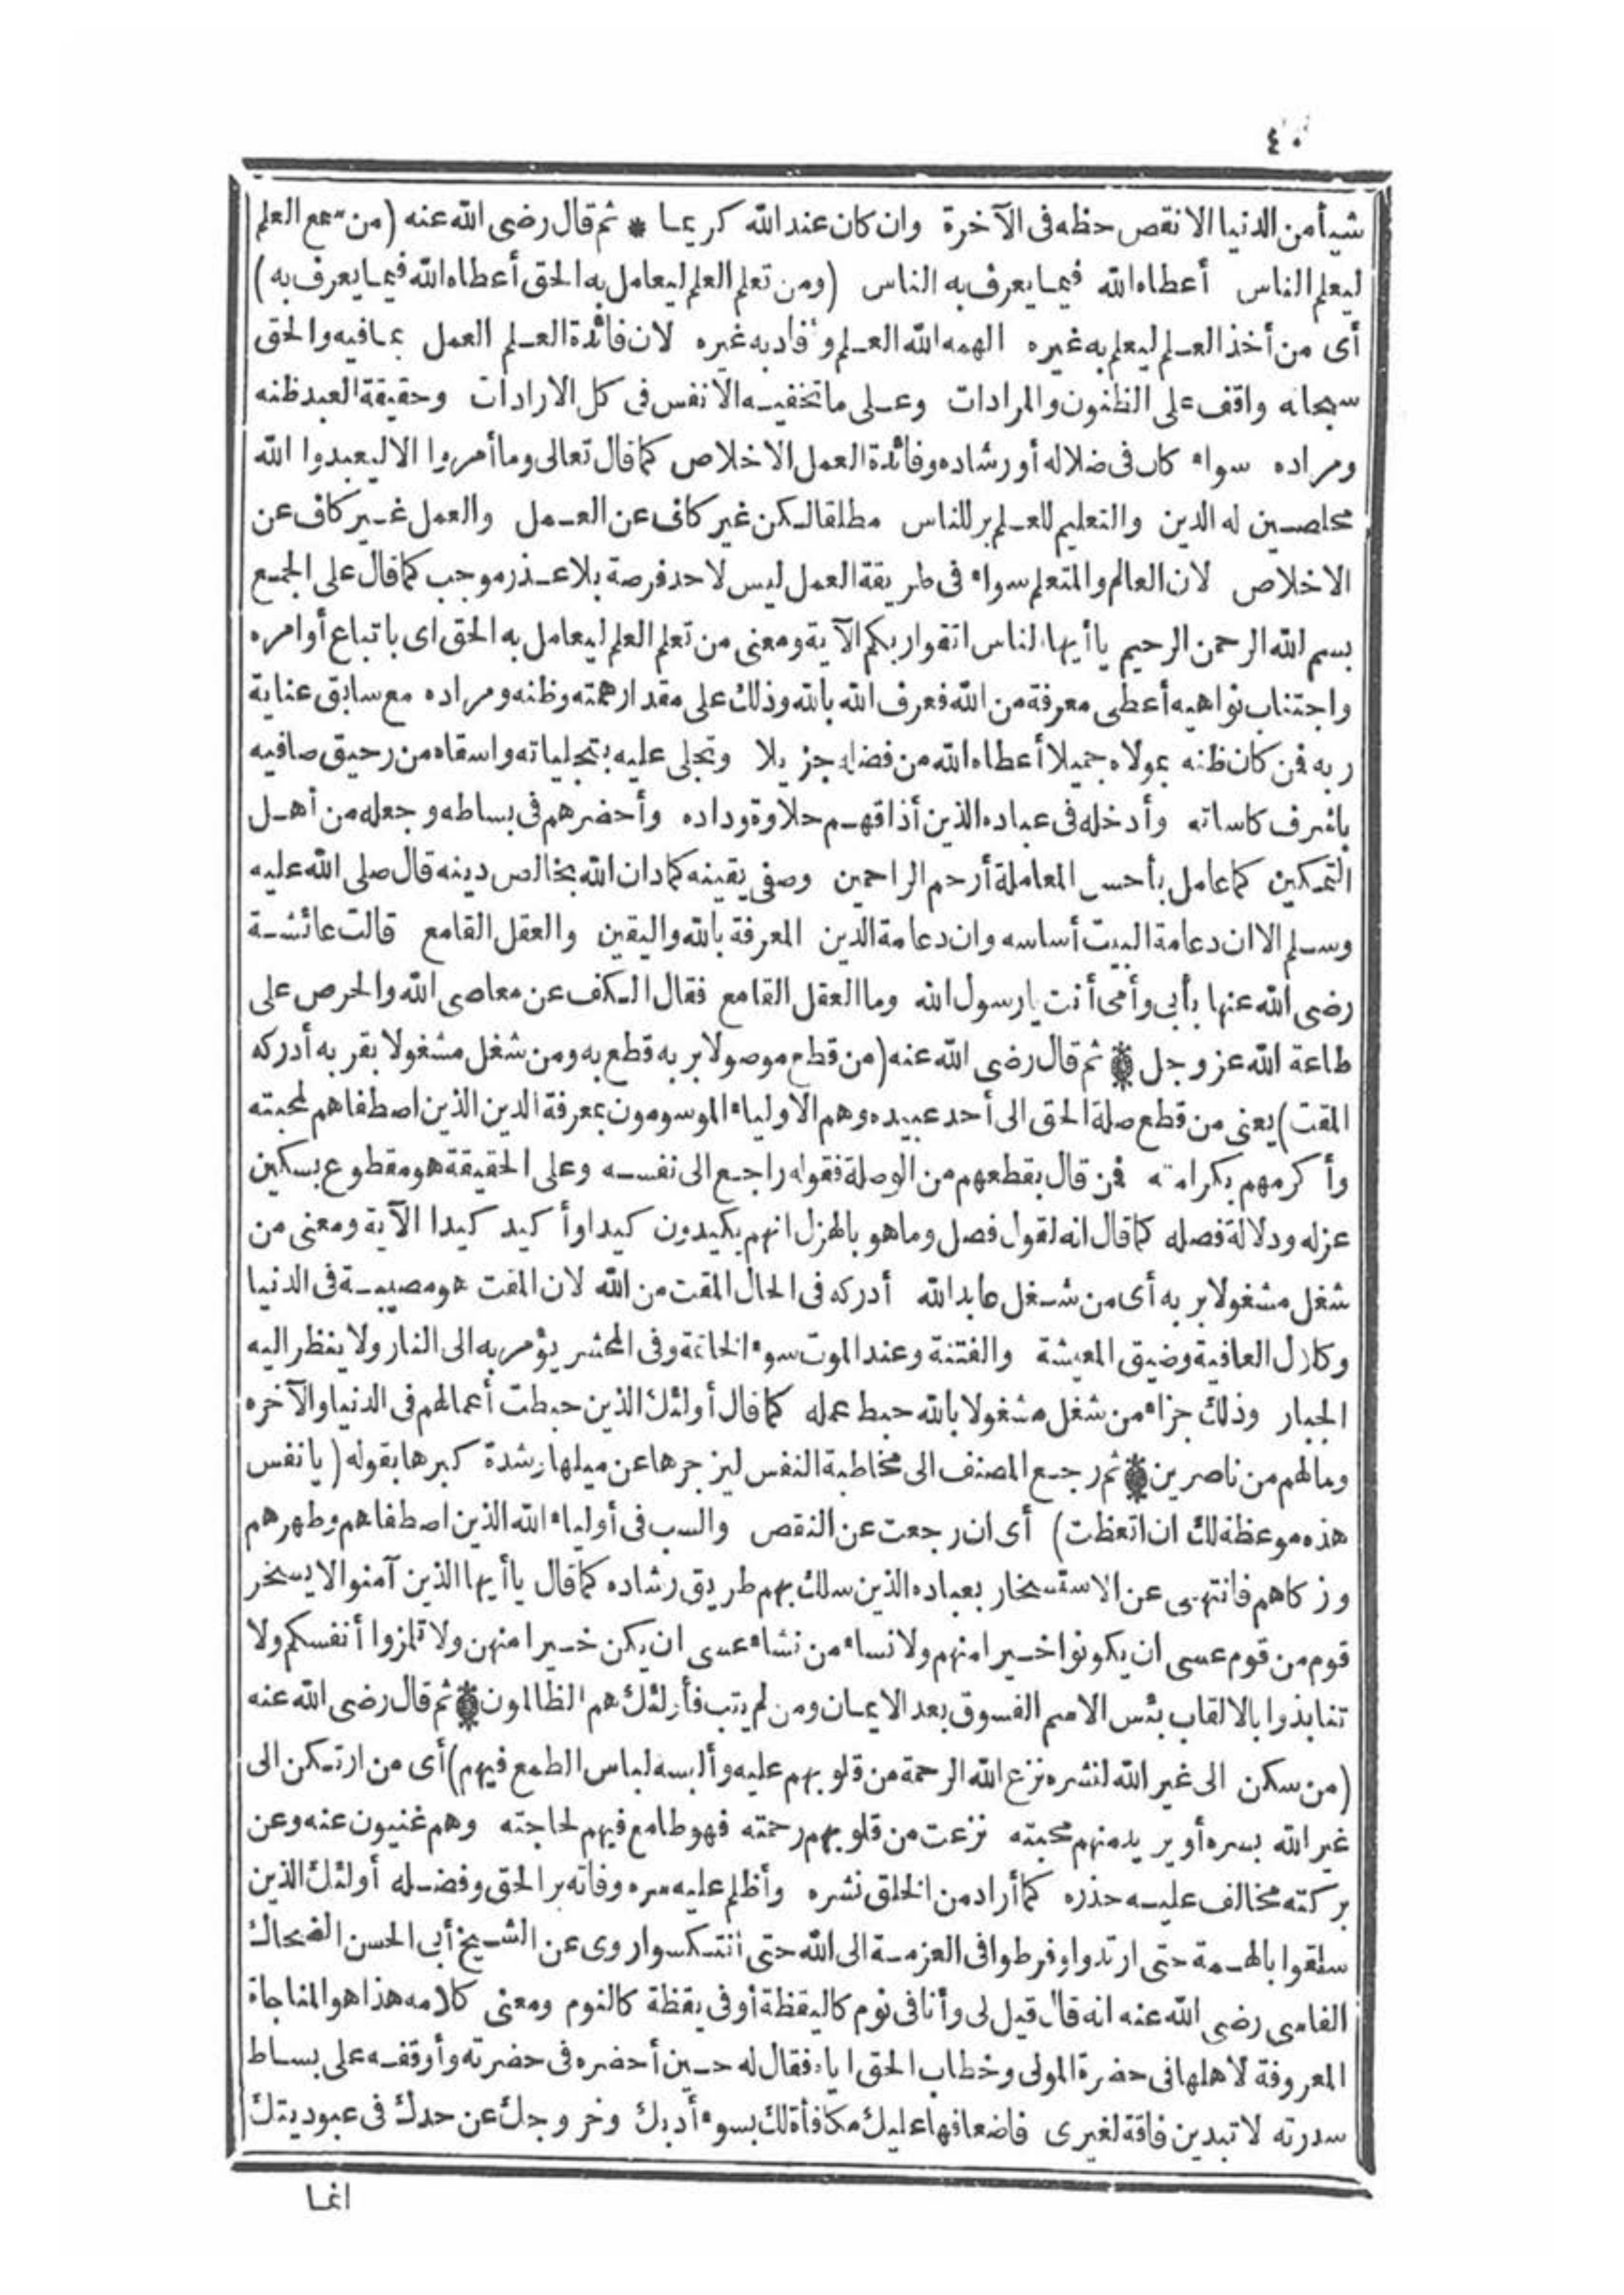 ٤٠
شيأ من الدنيا الا نقص حظه فى الآخرة وان كان عند الله كريما * ثم قال رضى الله عنه (من سمع العلم
ليعلم الناس أعطاه الله فيما يعرف به الناس (ومن تعلم العلم ليعامل به الحق أعطاه الله فيما يعرف به)
أى من أخذ العلم ليعلم به غيره الهمه الله العلم وأفاد به غيره لان فائدة العلم العمل بمافيه والحق
سبحانه واقف على الظنون والمرادات وعلى ماتخفيه الانفس فى كل الارادات وحقيقة العبد ظنه
ومراده سواء كان فى ضلاله أو رشاده وفائدة العمل الاخلاص كما قال تعالى وما أمروا الا ليعبدوا الله
مخلصين له الدين والتعليم للعلم بر للناس مطلقا لكن غير كاف عن العمل والعمل غير كاف عن
الاخلاص لان العالم والمتعلم سواء فى طريقة العمل ليس لاحد فرصة بلا عذر موجب كما قال على الجمع
بسم الله الرحمن الرحيم ياأيها الناس اتقوا ربكم الآية ومعنى من تعلم العلم ليعامل به الحق اى باتباع أوامره
واجتناب نواهيه أعطى معرفة من الله فعرف الله بالله وذلك على مقدار همته وظنه ومراده مع سابق عناية
ربه فمن كان ظنه بمولاه جميلا أعطاه الله من فضله جزيلا وتجلى عليه بتجلياته واسقاه من رحيق صافيه
باشرف كاساته وأدخله فى عباده الذين أذاقهم حلاوة وداده وأحضرهم فى بساطه وجعله من أهل
التمكين كما عامل بأحسن المعاملة أرحم الراحمين وصفى يقينه كمادان الله بخالص دينه قال صلى الله عليه
وسلم الا ان دعامة البيت أساسه وان دعامة الدين المعرفة بالله واليقين والعقل القامع قالت عائشة
رضى الله عنها بأبى وأمى أنت يارسول الله وما العقل القامع فقال الكف عن معاصى الله والحرص على
طاعة الله عز وجل * ثم قال رضى الله عنه (من قطع موصولا بربه قطع به ومن شغل مشغولا بقربه أدركه
المقت) يعنى من قطع صلة الحق الى أحد عبيده وهم الاولياء الموسومون بمعرفة الدين الذين اصطفاهم لمحبته
وأكرمهم بكرامته فمن قال بقطعهم من الوصلة فقوله راجع الى نفسه وعلى الحقيقة هو مقطوع بسكين
عزله ودلالة فصله كما قال انه لقول فصل وما هو بالهزل انهم يكيدون كيدا وأكيد كيدا الآية ومعنى من
شغل مشغولا بربه أى من شغل عابد الله أدركه فى الحال المقت من الله لان المقت هو مصيبة فى الدنيا
العافية وضيق المعيشة والفتنة وعند الموت سوء الخاتمة وفى المحشر يؤمر به الى النار ولا ينظر اليه
الجبار وذلك جزاء من شغل مشغولا بالله حبط عمله كما قال أولئك الذين حبطت أعمالهم فى الدنيا والآخرة
ومالهم من ناصرين * ثم رجع المصنف الى مخاطبة النفس ليزجرها عن ميلها بشدة كبرها بقوله (يا نفس
هذه موعظة لك ان اتعظت) أى ان رجعت عن النقص والسب فى أولياء الله الذين اصطفاهم وطهرهم
وزكاهم فانتهى عن الاستسخار بعباده الذين سلك بهم طريق رشاده كما قال ياأيها الذين آمنوا لا يسخر
قوم من قوم عسى ان يكونوا خيرا منهم ولا نساء من نساء عسى ان يكن خيرا منهن ولا تلمزوا أنفسكم ولا
تنابذوا بالالقاب بئس الاسم الفسوق بعد الايمان ومن لم يتب فأولئك هم الظالمون * ثم قال رضى الله عنه
(من سكن الى غير الله لنشره نزع الله الرحمة من قلوبهم عليه وألبسه لباس الطمع فيهم) أى من ارتكن الى
غير الله بسره أو يريد منهم محبته نزعت من قلوبهم رحمته فهو طامع فيهم لحاجته وهم غنيون عنه وعن
بركته مخالف عليه حذره كما أراد من الخلق نشره وأظلم عليه سره وفاته بر الحق وفضله أولئك الذين
سلقوا بالهمة حتى ارتدوا وفرطوا فى العزمة الى الله حتى انتكسوا روى عن الشيخ أبى الحسن الضحاك
الفاسى رضى الله عنه انه قال قيل لى وأنا فى نوم كاليقظة أوفى يقظة كالنوم ومعنى كلامه هذا هو المناجاة
المعروفة لاهلها فى حضرة المولى وخطاب الحق اياه فقال له حين أحضره فى حضرته وأوقفه على بساط
سدرته لا تبدين فاقة لغيرى فاضعافها عليك مكافأة لك بسوء أدبك وخروجك عن حدك فى عبوديتك
انما